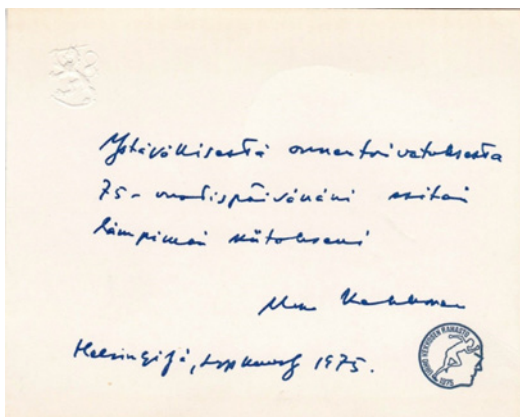 Ystävällisestä onnentoivotuksesta
75-vuotispäivänäni esitän
lämpimän kiitokseni
Urho Kekkonen
Helsingissä, syyskuussa 1975.
URHO KEKKOSEN RAHASTO
1975